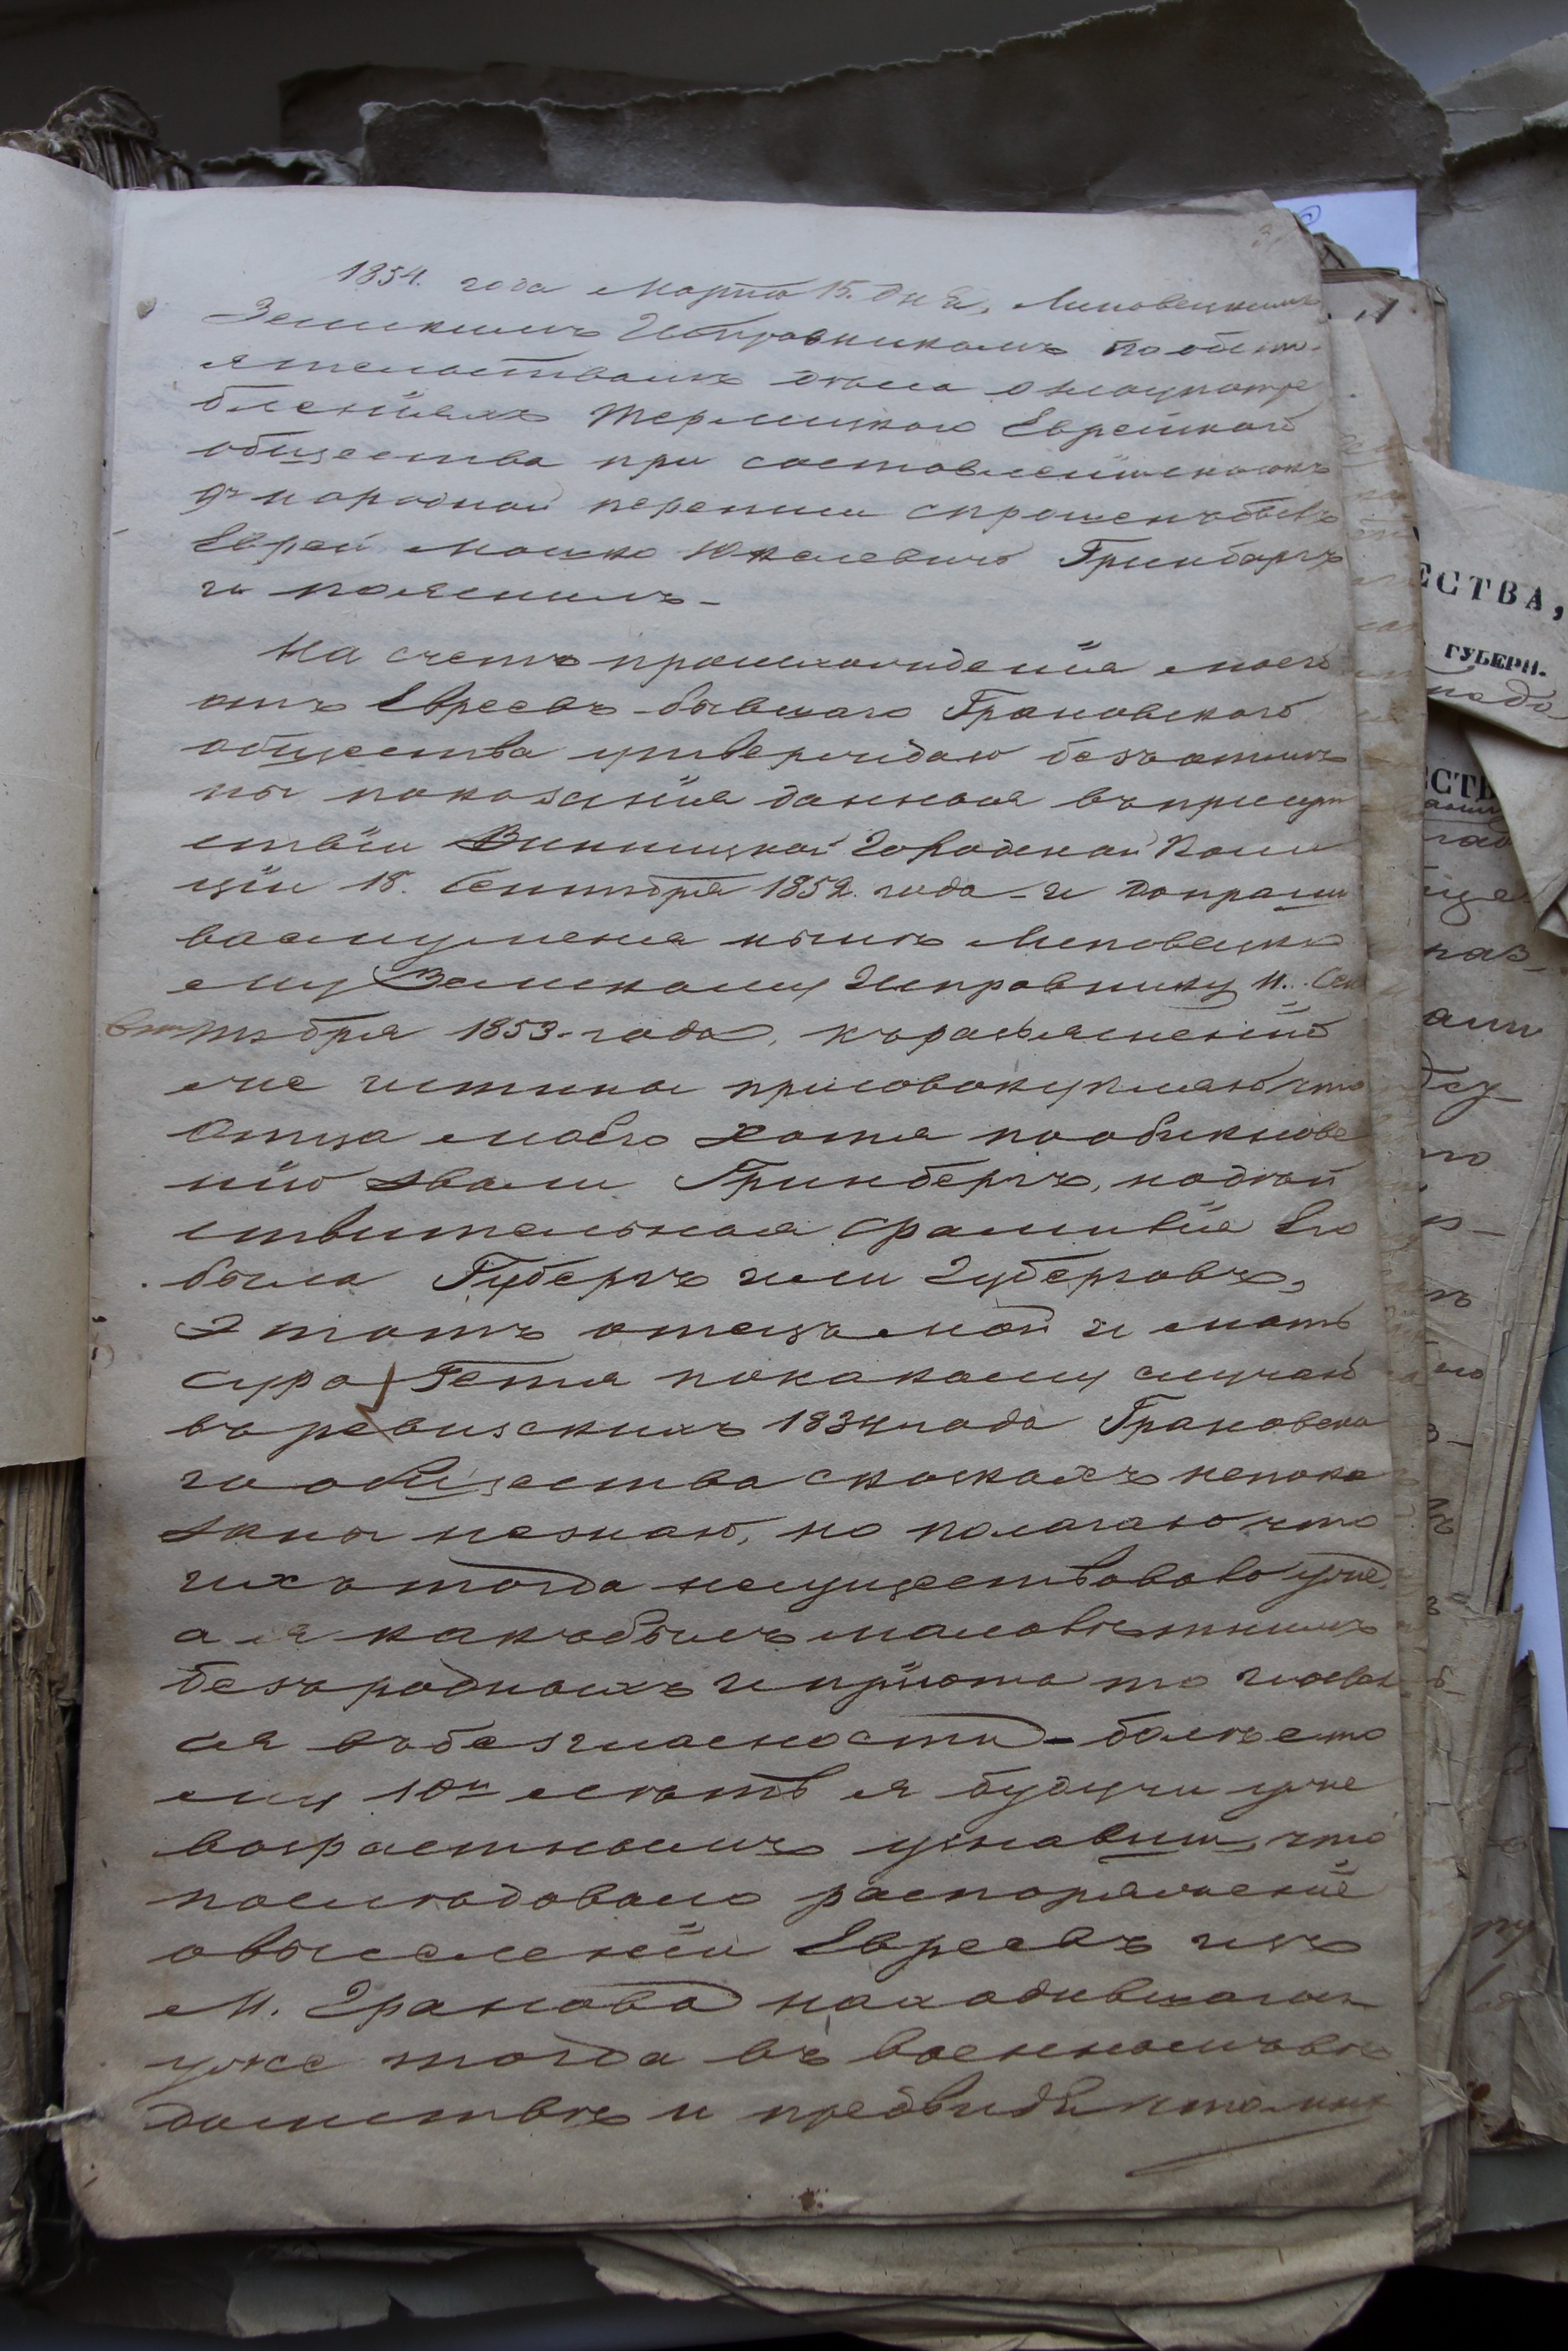 1854. года марта 15. дня, Липовецкимъ
Земскимъ Исправникомъ по обсто-
ятельствамъ дѣла о злоупотре
бленіяхъ Терлицкаго Еврейскаго
общества при составленіи сказокъ
9й народной переписи спрошенъ былъ
Еврей Мошко Юкелевичъ Гринбергъ
и пояснилъ-
На счетъ происхожденія моего
отъ Евреевъ бывшаго Грановскаго
общества утверждаю безъ отмѣ
ны показанія данныя въ присут
ствіи Винницкой Городской Поли
ціи 18. Сентября 1852. года - и допраши
ваемому меня нынѣ Липовецко
му Земскому Исправнику 11. Сен
тября 1853. года, къ разъясненію
же истины присовокупляю что
Отца моего хотя по обыкнове
нію звали Гринбергъ, но дѣй
ствительная фамилія Его
была Губергъ или Губерговъ,
этотъ отецъ мой и мать
Сура Гетя по какому случаю
въ ревизскихъ 1834 года Грановска
го общества сказкахъ не пока
заны не знаю, но полагаю что
ихъ тогда не существовало уже,
а я какъ былъ малолѣтнимъ
безъ родныхъ и пріюта то и остал
ся въ безгласности - болѣе то
му 10ти лѣтъ я будучи уже
возрастнымъ узнавши, что
послѣдовало распоряженіе
о выселеніи Евреевъ изъ
м. Гранова находившагося
уже тогда въ военномъ вѣ
домствѣ и предвидя что мнѣ
ЕСТВА,
ГУБЕРН.